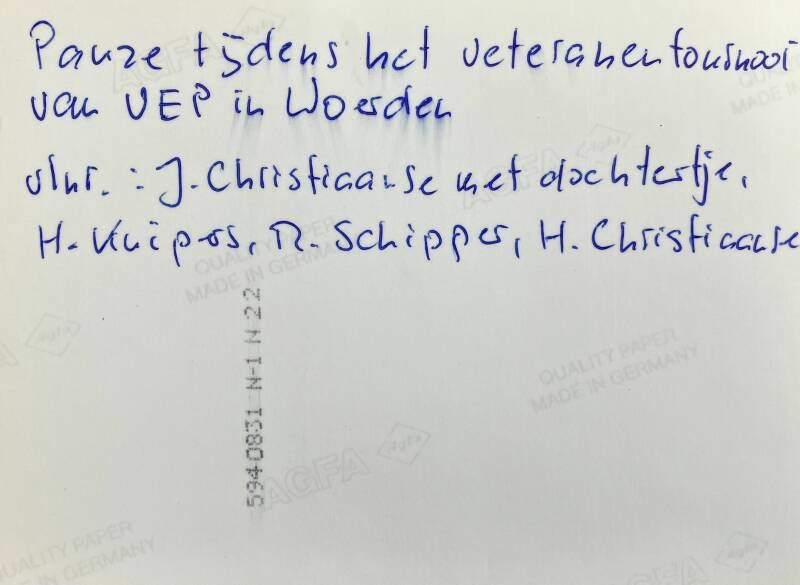 Pauze tijdens het veteranentournooi
van VEP in Woerden
vlnr. : J. Christiaanse met dochtertje,
H. Kuipers, R. Schipper, H. Christiaanse
5940831 N-1 N 22
AGFA
QUALITY PAPER
MADE IN GERMANY
QUALITY PAPER
MADE IN GERMANY
AGFA
QUALITY PAPER
MADE IN GERMANY
AGFA